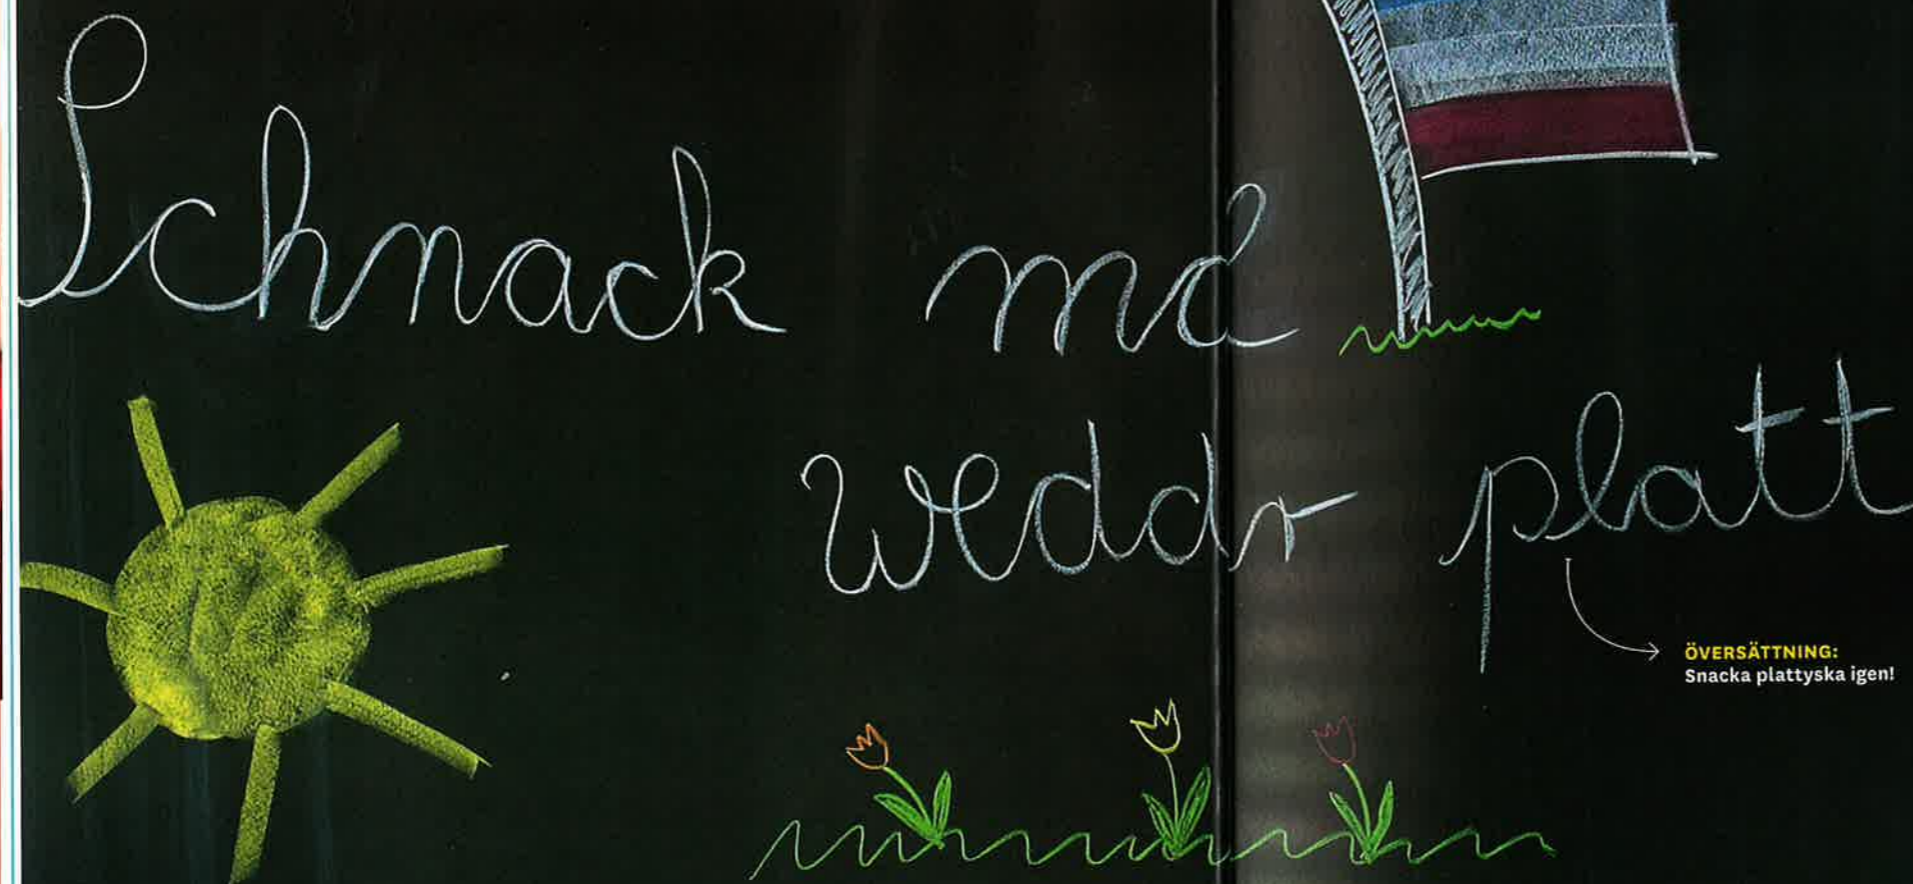 Schnack
weddr platt
ÖVERSÄTTNING:
Snacka plattyska igen!